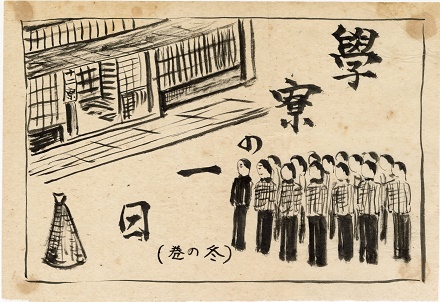 學寮の一日
(冬の巻)